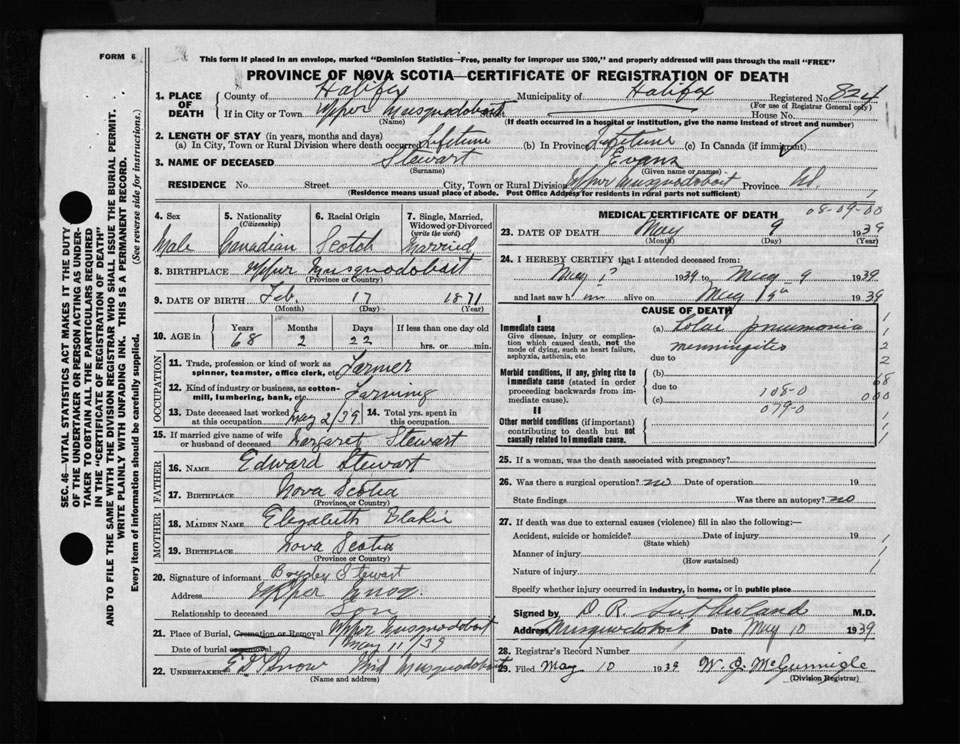 FORM 6
This form if placed in an envelope, marked "Dominion Statistics—Free, penalty for improper use $300," and properly addressed will pass through the mail "FREE"
PROVINCE OF NOVA SCOTIA—CERTIFICATE OF REGISTRATION OF DEATH
SEC. 46—VITAL STATISTICS ACT MAKES IT THE DUTY
OF THE UNDERTAKER OR PERSON ACTING AS UNDER-
TAKER TO OBTAIN ALL THE PARTICULARS REQUIRED
IN THE "CERTIFICATE OF REGISTRATION OF DEATH"
AND TO FILE THE SAME WITH THE DIVISION REGISTRAR WHO SHALL ISSUE THE BURIAL PERMIT.
WRITE PLAINLY WITH UNFADING INK. THIS IS A PERMANENT RECORD.
Every item of information should be carefully supplied. (See reverse side for instructions.)
1. PLACE OF DEATH County of Halifax Municipality of Halifax Registered No. 824
(For use of Registrar General only)
If in City or Town Upper Musquodoboit House No.
(Name) (If death occurred in a hospital or institution, give the name instead of street and number)
2. LENGTH OF STAY (in years, months and days)
(a) In City, Town or Rural Division where death occurred Lifetime (b) In Province Lifetime (c) In Canada (if immigrant)
3. NAME OF DECEASED Stewart Evans
(Surname) (Given name or names)
RESIDENCE No. Street City, Town or Rural Division Upper Musquodoboit Province N.S.
(Residence means usual place of abode. Post Office Address for residents in rural parts not sufficient)
4. Sex 5. Nationality (Citizenship) 6. Racial Origin 7. Single, Married, Widowed or Divorced (write the word)
Male Canadian Scotch Married
8. BIRTHPLACE Upper Musquodoboit
(Province or Country)
9. DATE OF BIRTH Feb. 17 1871
(Month) (Day) (Year)
10. AGE in Years Months Days If less than one day old
68 2 22 hrs. or min.
OCCUPATION
11. Trade, profession or kind of work as spinner, teamster, office clerk, etc. Farmer
12. Kind of industry or business, as cotton-mill, lumbering, bank, etc. Farming
13. Date deceased last worked at this occupation May 2/39 14. Total yrs. spent in this occupation
15. If married give name of wife or husband of deceased Margaret Stewart
FATHER
16. NAME Edward Stewart
17. BIRTHPLACE Nova Scotia
(Province or Country)
MOTHER
18. MAIDEN NAME Elizabeth
19. BIRTHPLACE Nova Scotia
(Province or Country)
20. Signature of informant Stewart
Address Upper Musq.
Relationship to deceased Son
21. Place of Burial, Cremation or Removal Upper Musquodoboit
Date of burial or removal May 11/39
22. UNDERTAKER Musquodoboit
(Name and address)
MEDICAL CERTIFICATE OF DEATH
08-09-00
23. DATE OF DEATH May 9 1939
(Month) (Day) (Year)
24. I HEREBY CERTIFY that I attended deceased from:
May 1st 1939 to May 9 1939
and last saw him alive on May 1939
CAUSE OF DEATH
I
Immediate cause (a) Lobar pneumonia
Give disease, injury or complication which caused death, not the mode of dying, such as heart failure, asphyxia, asthenia, etc
Menningites
due to
Morbid conditions, if any, giving rise to immediate cause (stated in order proceeding backwards from immediate cause).
(b)
due to 108-0
(c) 079-0
II
Other morbid conditions (if important) contributing to death but not causally related to immediate cause.
1
1
2
2
68
000
25. If a woman, was the death associated with pregnancy?
26. Was there a surgical operation? no Date of operation 19
State findings Was there an autopsy? no
27. If death was due to external causes (violence) fill in also the following:—
Accident, suicide or homicide? Date of injury 19
(State which)
Manner of injury
(How sustained)
Nature of injury
Specify whether injury occurred in industry, in home, or in public place
Signed by D. R. Sutherland M.D.
Address Musquodoboit Date May 10 1939
28. Registrar's Record Number
29. Filed May 10 1939
(Division Registrar)